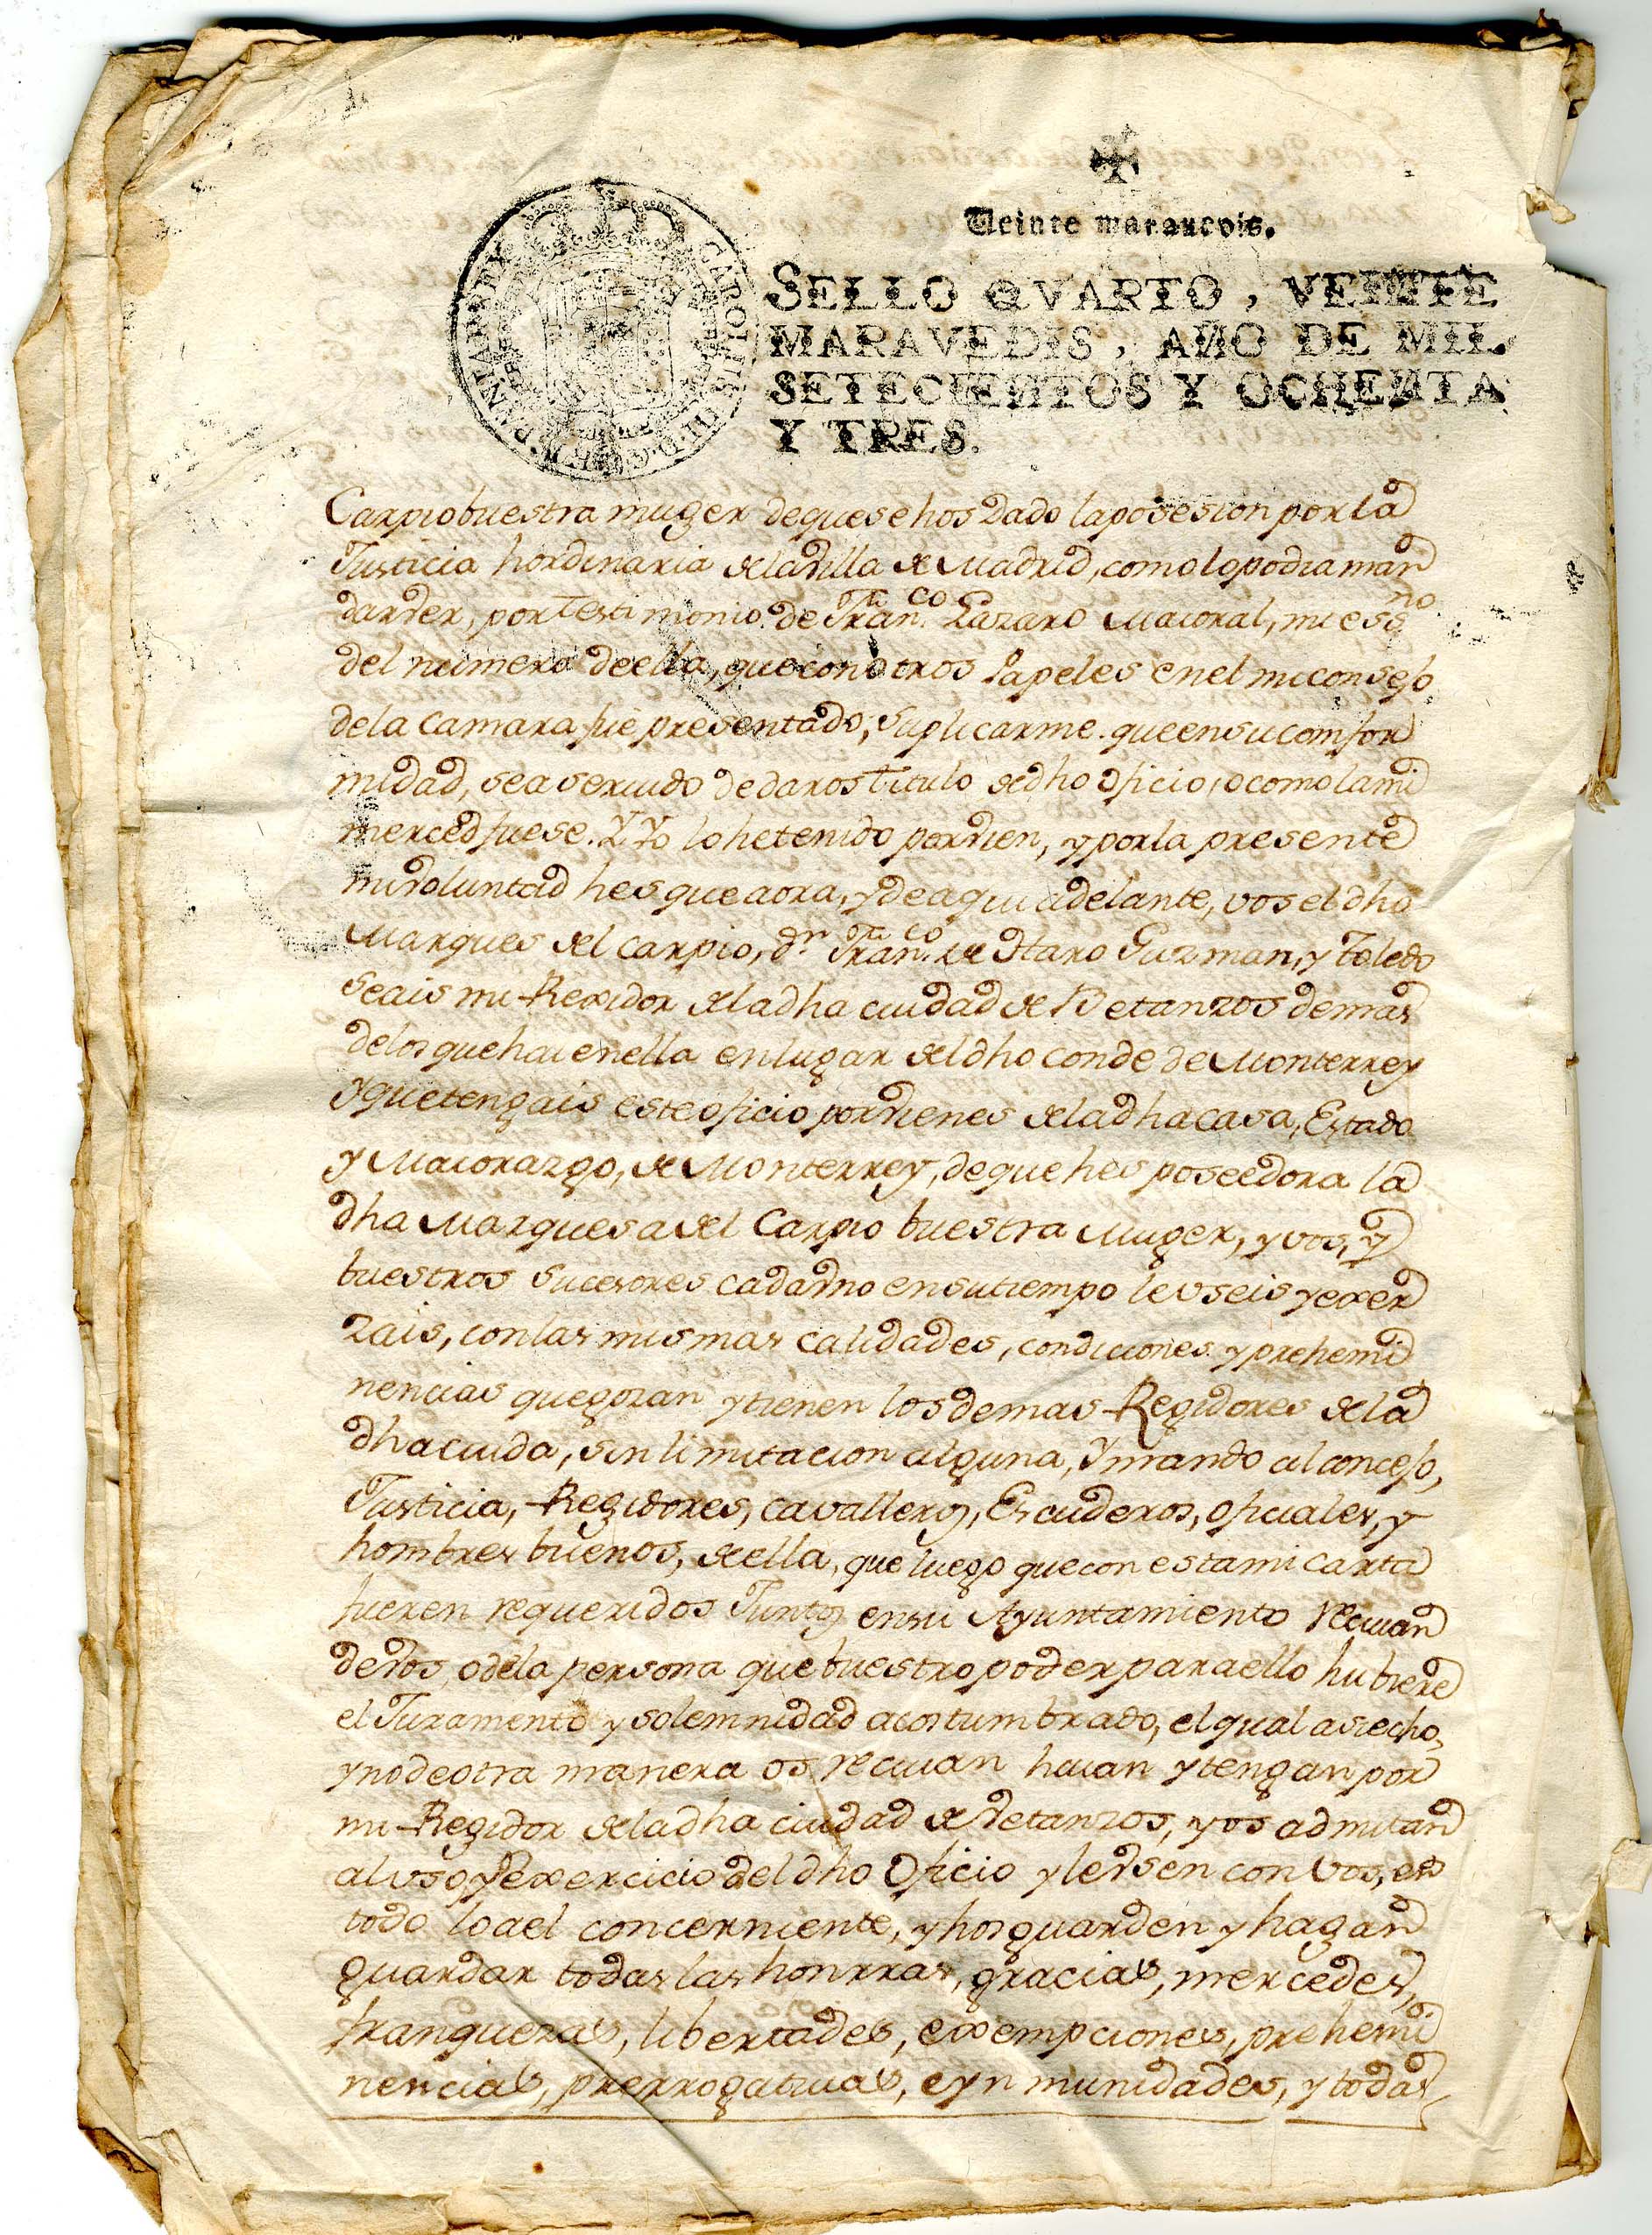 Veinte maravedis.
SELLO QVARTO, VEINTE
MARAVEDIS, AÑO DE MIL
SETECIENTOS Y OCHENTA
Y TRES.
CAROLUS III D. G.
Carpio buestra muger de que se hos dado la posesion por la
Justicia hordinaria de la Villa de Madrid, como lo podia man
dar ver, por Testimonio de Fran.co Lazaro Maioral, mi ess.no
del numero de ella, que con otros Papeles en el mi consejo
de la Camara fue presentado, suplicarme que en su comfor
midad, sea seruido de daros titulo de dho oficio, o como la mi
merced fuese. Y Yo lo he tenido por vien, y por la presente
mi voluntad hes que aora, y de aqui adelante, vos el dho
Marques del Carpio, d.n Fran.co de Haro Guzman, y Toledo
seais mi Rexidor de la dha ciudad de Betanzos demas
de los que hai en ella en lugar del dho conde de Monterrey
y que tengais este oficio por vienes de la dha casa, Estado
y Maiorazgo, de Monterrey, de que hes poseedora la
dha Marquesa del Carpio buestra Muger, y vos, y
buestros sucesores cada vno en su tiempo le vseis y exer
zais, con las mismas calidades, condiciones y prehemi
nencias que gozan y tienen los demas Regidores de la
dha ciuda, sin limitacion alguna, Y mando al concejo,
Justicia, Regidores, cavalleros, Escuderos, oficiales, y
hombres buenos, de ella, que luego que con esta mi carta
fueren requeridos Juntos en su Ayuntamiento reciuan
de vos, o de la persona que buestro poder para ello hubiere
el Juramento y solemnidad acostumbrado, el qual asi echo,
y no de otra manera os reciuan haian y tengan por
mi Regidor de la dha ciudad de Vetanzos, y os admitan
al uso y exercicio del dho Oficio y le vsen con vos, en
todo lo a el concerniente, y hos guarden y hagan
guardar todas las honrras, gracias, mercedes,
franquezas, libertades, exempciones, prehemi
nencias, prerrogatiuas, e yn munidades, y todas